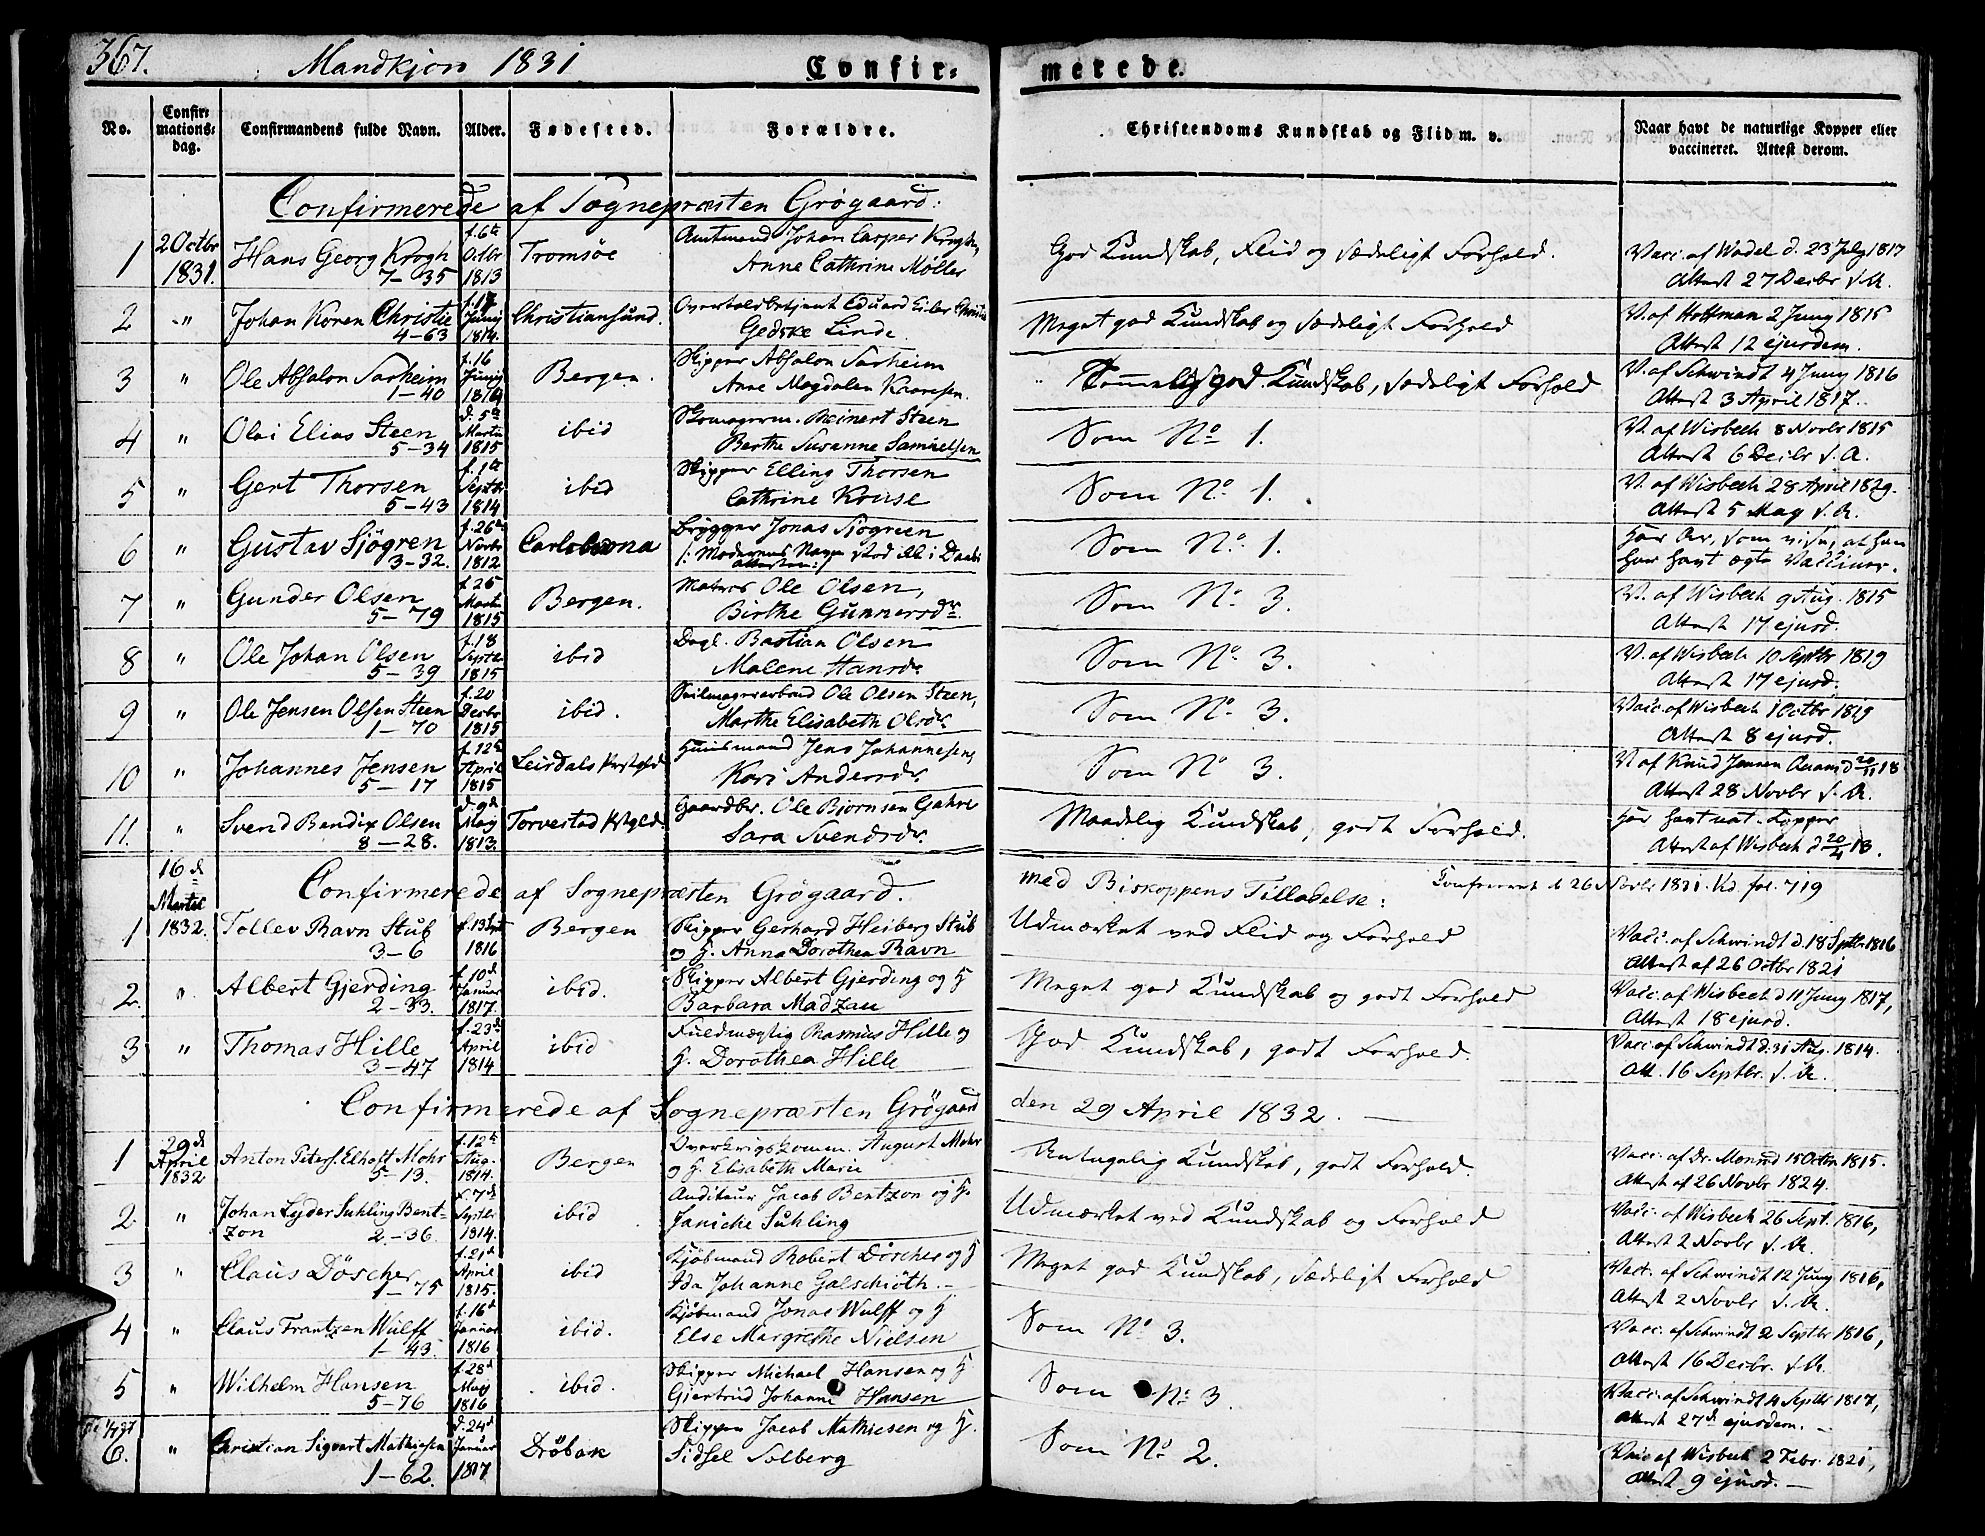 367. Mandkjøn 1831 Confir= merede.
No. Confir= mations= dag. Confirmandens fulde Navn. Alder. Fødested. Forældre. Christendoms Kundskab og Flid m. v. Naar havt de naturlige Kopper eller vaccineret. Attest derom.
Confirmerede af Sognepræsten Grøgaard:
1 2 Octbr 1831. Hans Georg Krogh 7-35 f. 6te Octbr 1813 Tromsöe Amtmand Johan Casper Krogh, Anne Cathrine Möller God Kundskab, Flid og sædeligt Forhold. Vacc. af Wadel d. 23 July 1817 Attest 27 Decbr s. A.
2 -" Johan Koren Christie 4-63 f. 17 Juny 1814. Christiansund. Overtoldbetjent Eduard Eiler Christie Gedske Linde Meget god Kundskab og sædeligt Forhold V. af Hoffman 2 Juny 1815 Attest 12 ejusdem.
3 " Ole Absalon Sarheim 1-40 f. 16 Juny 1816 Bergen. Skipper Absalon Sarheim Anne Magdalen Knaresen. Temmelig god Kundskab, sædeligt Forhold V. af Schwindt 4 Juny 1816 Attest 3 April 1817.
4 " Olai Elias Steen 5-34 d. 5te Martii 1815 ibid Skomagerm. Reinert Steen Berthe Susanne Samuelsen Som No 1. V. af Wisbech 8 Novbr 1815 Attest 6 Decbr s. A.
5 " Gert Thorsen 5-43 f. 1te Septbr 1814 ibid Skipper Elling Thorsen Cathrine Kruse Som No 1. V. af Wisbech 28 April 1829. Attest 5 May s. A.
6 " Gustav Sjögren 3-32. f. 26de Novbr 1812 Carlskrona Brygger Jonas Sjögreen /: Moderens Navn stod ikke i Daabs attesten :/ Som No 1. Har Ar, som vise, at han har havt ægte Vacciner.
7 " Gunder Olsen 5-79 f. 25 Martii 1815 Bergen. Matros Ole Olsen, Birthe Gunnersdr. Som No 3. V. af Wisbech 9 Aug. 1815 Attest 17 ejusd.
8 " Ole Johan Olsen 5-39 f. 18 Septbr 1815 ibid Dagl. Bastian Olsen Malene Hansdr Som No 3. V. af Wisbech 10 Septbr 1819 Attest 17 ejusd.
9 " Ole Jensen Olsen Steen 1-70 f. 20 Decbr 1815 ibid. Seilmagersvend Ole Olsen Steen, Marthe Elisabeth Olsdr. Som No 3. Vacc. af Wisbech 1 Octbr 1819 Attest 8 ejusd.
10 " Johannes Jensen 5-17 f. 12te April 1815 Leirdals Prstgld Huusmand Jens Johannesen, Kari Andersdr. Som No 3. V. af Knud Jensen d 20/11 18 Attest 28 Novbr s. A.
11. " Svend Bendix Olsen 8-28. d. 9de May 1813. Torvestad Prstgld. Gaardbr. Ole Bjornsen Sara Svendsdr. Maadelig Kundskab, godt Forhold. Har havt nat. Kopper Attest af Wisbech d 20/4 13.
16 d Martii 1832. Confirmerede af Sognepræsten Grøgaard. med Biskoppens Tilladelse: Confirmeret d 26 Novbr 1831. Vid. fol. 719
1 Tollev Ravn Stub 3-6 f. 13 Sept 1816 Bergen Skipper Gerhard Heiberg Stub og H. Anna Dorothea Ravn Udmærket ved Flid og Forhold Vacc. af Schwindt d. 18 Septbr 1816 Attest af 26 Octbr 1821
2. " Albert Gjerding 2-33. f. 10d Januar 1817. ibid. Skipper Albert Gjerding og H Barbara Madzau Meget god Kundskab og godt Forhold Vacc. af Wisbech d 11 Juny 1817, Attest 18 ejusd.
3 " Thomas Hille 3-47 f. 23de April 1814 ibid Fuldmægtig Rasmus Hille og H. Dorothea Hille God Kundskab, godt Forhold. Vacc. af Schwindt d. 31 Aug. 1814. Att. 16 Septbr. s. A.
Confirmerede af Sognepræsten Grøgaard den 29 April 1832.
1 29 d April 1832 Anton Peters. Elholt Mohr 5-13. f. 12te Aug. 1814. Bergen Overkrigskomm. August Mohr og H. Elisabeth Marie Antagelig Kundskab, godt Forhold. Vacc. af Dr. Monrad 15 Octbr 1815. Attest af 26 Novbr 1824.
2. " Johan Lyder Suhling Bent= zon 2-36. f. 7d Septbr 1814. ibid Auditeur Jacob Bentzon og H. Janiche Suhling Udmærket ved Kundskab og Forhold Vacc. af Wisbech 26 Sept. 1816, Attest 2 Novbr s. A.
3 " Claus Döscher 1-75 f. 21d April 1815. ibid Kjöbmand Robert Döscher og H Ida Johanne Galschiöth. Meget god Kundskab, sædeligt Forhold Vacc. af Schwindt 12 Juny 1816, Attest 2 Novbr s. A.
4 " Claus Frantzen Wulff 1-43. f. 16d Januar 1816 ibid. Kjöbmand Jonas Wulff og H Else Margrethe Nielsen Som No 3. Vacc. af Schwindt 2 Septbr 1816, Attest 16 Decbr. s. A.
5 " Wilhelm Hansen 5-76 f. 28d May 1816 ibid. Skipper Michael Hansen og H Gjertrud Johanne Hansen Som No 3. Vacc. af Schwindt 4 Septbr 1817, Attest 27d. ejusdem.
6. " Christian Sigvart Mathiesen 1-62. d. 24d Januar 1817 Dröbak Skipper Jacob Mathiesen og H. Sidsel Solberg Som No 2. Vacc. af Wisbech 2 Febr. 1821, Attest 9 ejusd.